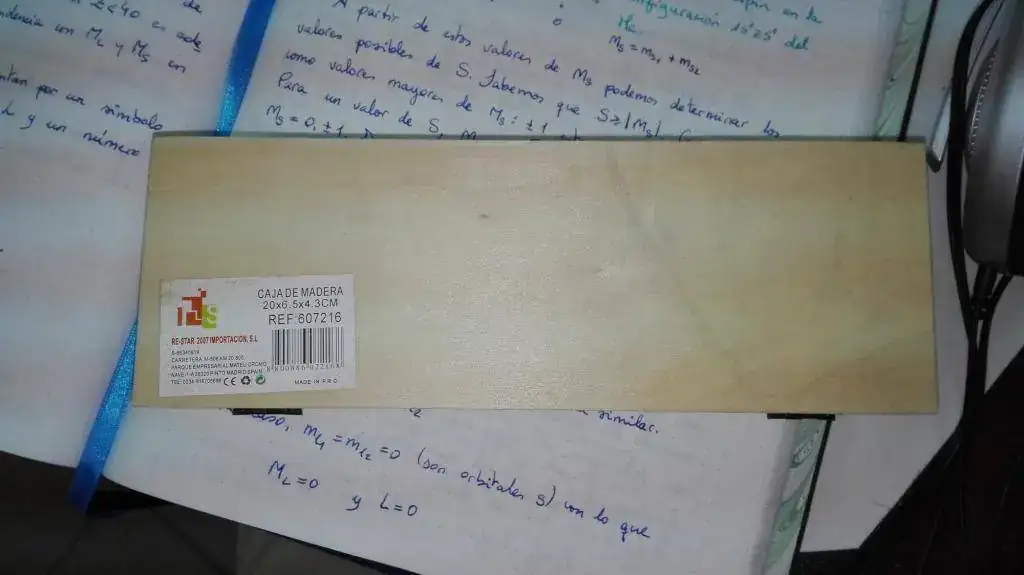 Z<40 es
de
dencia con M_L y M_S en
tan por un símbolo
L y un número
A partir de estos valores de M_S podemos determinar los
valores posibles de S. Sabemos que S≥|M_S|
como valores mayores de M_S: ±1
Para un valor de S, M
M_S=0, ±1
en la
nfiguración 1s¹2s¹ del
He.
M_S=m_s1+m_s2
CAJA DE MADERA
20x6.5x4.3CM
REF:607216
RE-STAR 2007 IMPORTACION, S.L
PARQUE EMPRESARIAL MATEU CROMO
PINTO MADRID SPAIN
CE
MADE IN P.R.C
similar.
caso, m_l1=m_l2=0 (son orbitales s) con lo que
M_L=0 y L=0